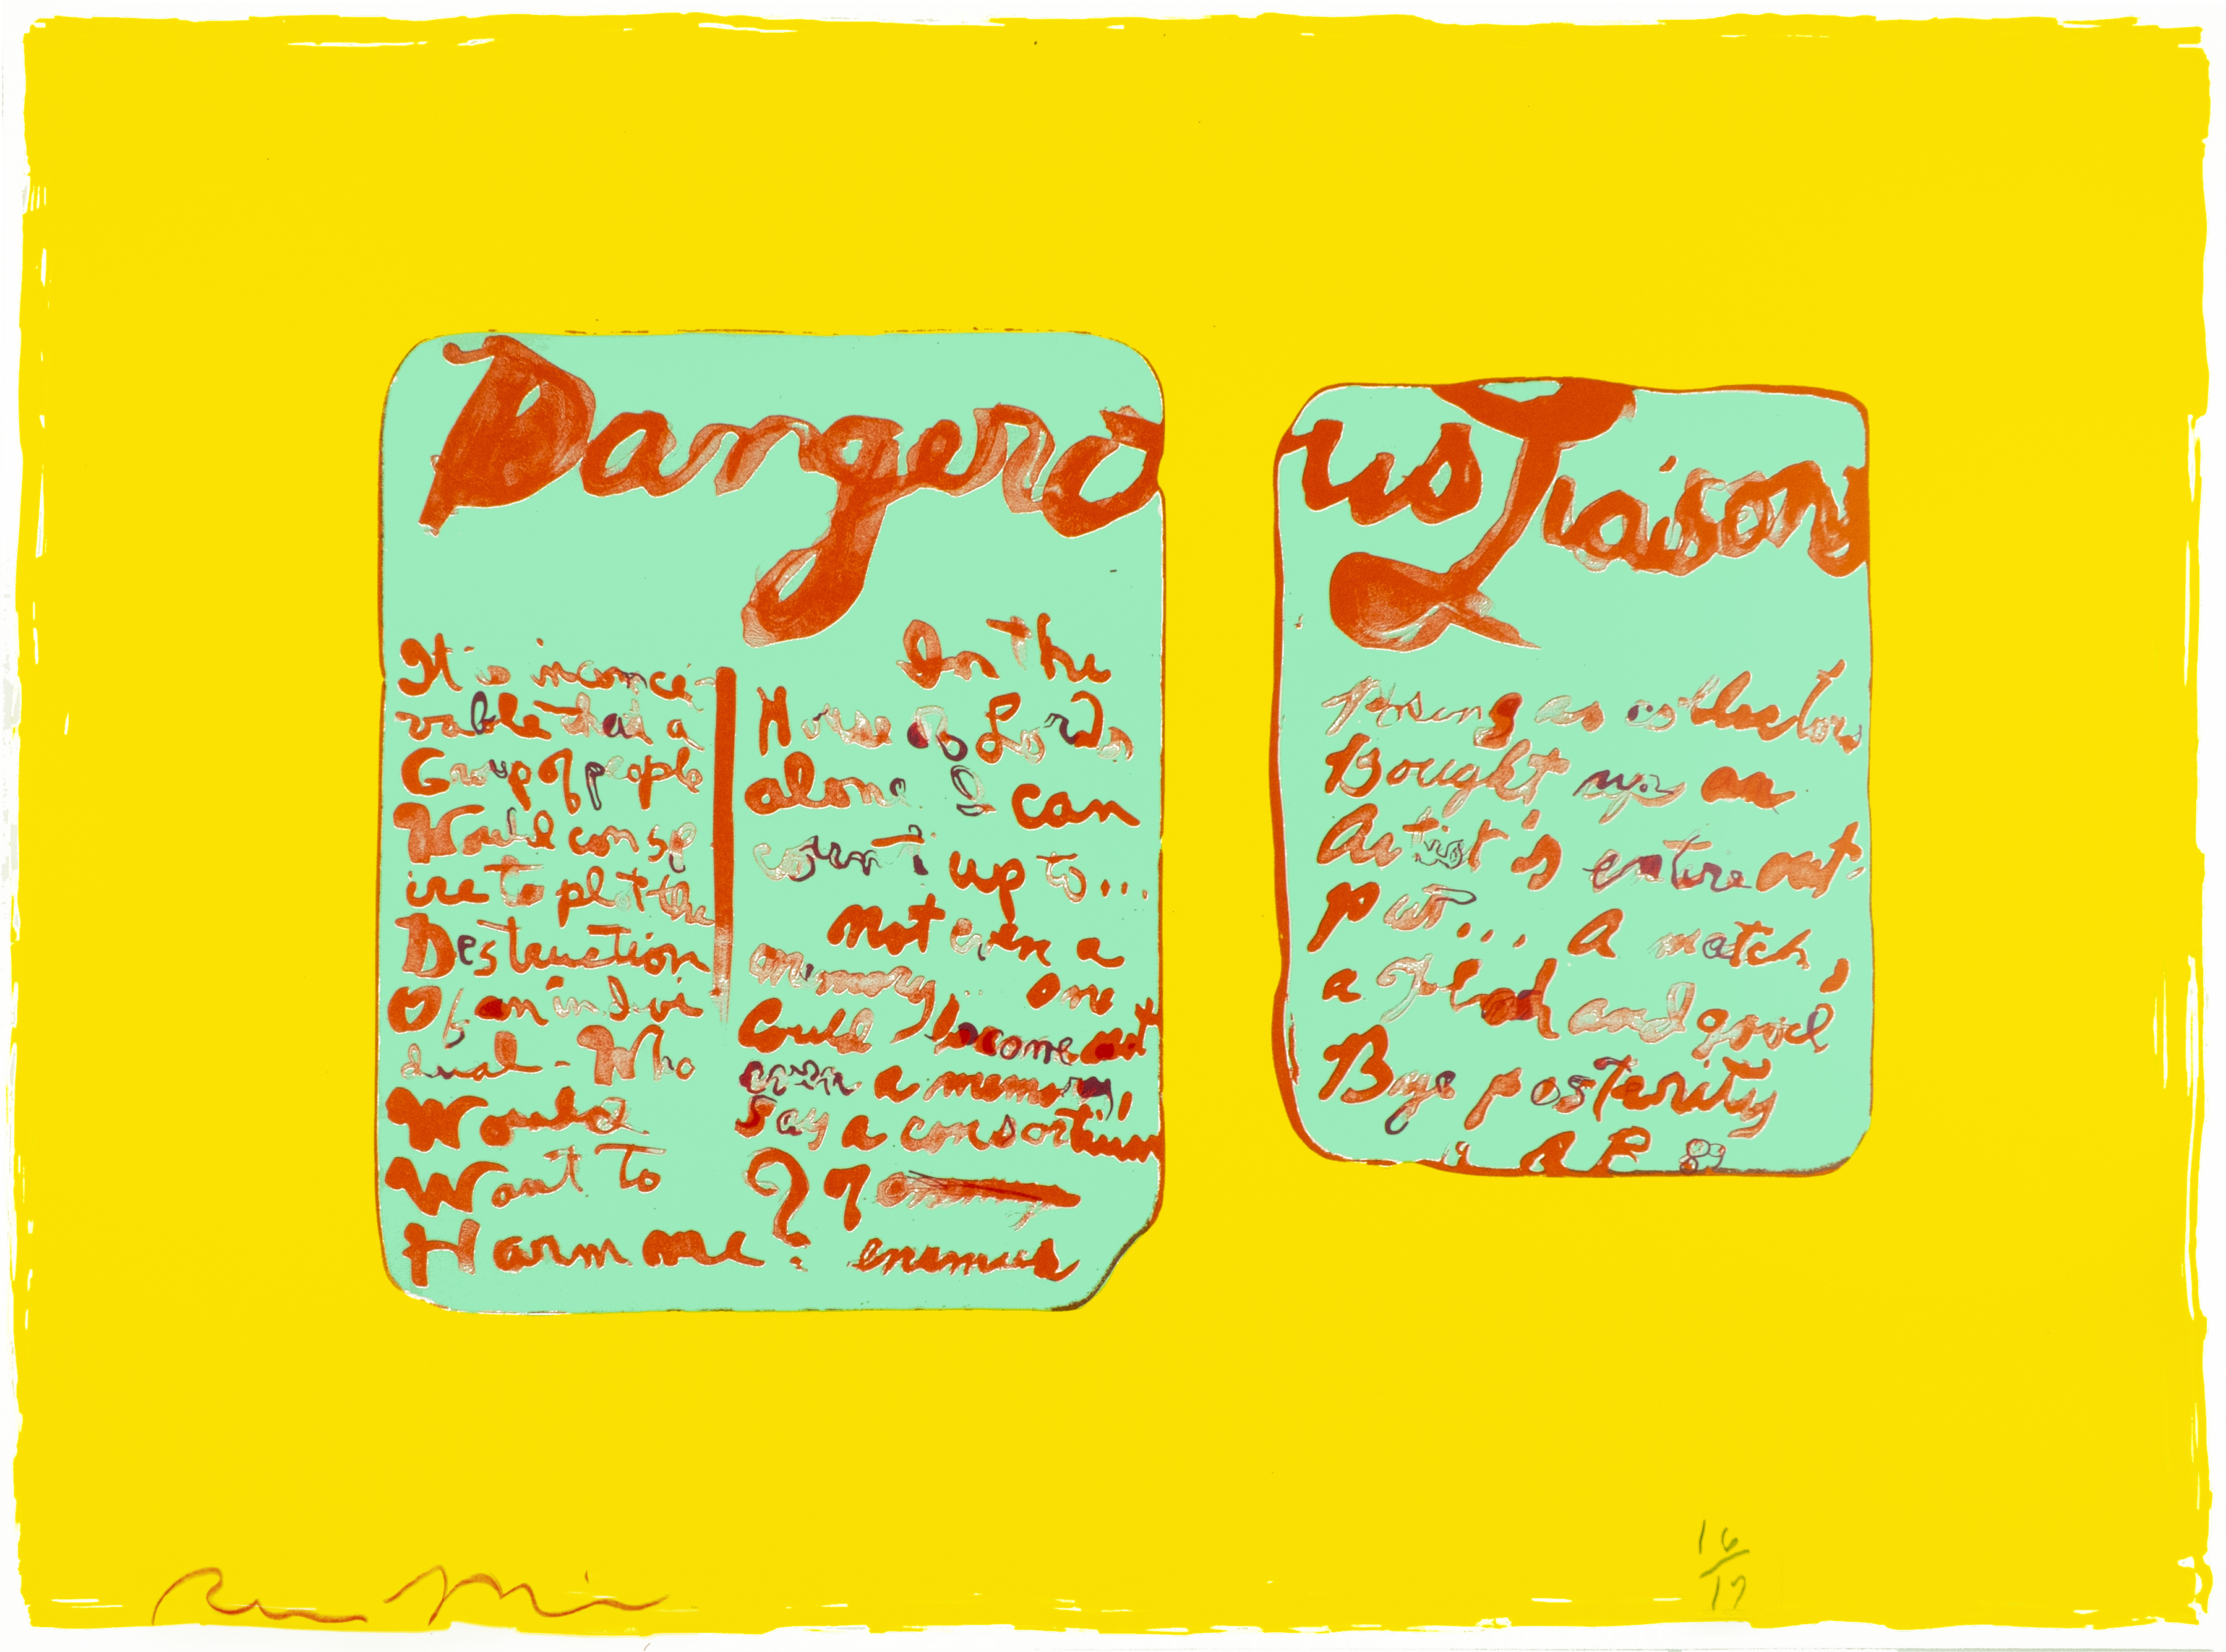 Dangero
us Liaisons
It is inconcei-
vable that a
Group of people
Would consp
ire to plot the
Destruction
Of an indivi
dual - Who
Would
Want to
Harm me?
In the
House of Lords
alone I can
count up to...
not even a
memory... One
Could become not
even a memory,
Say a consortium
of
enemies
Posing as collectors
Bought up an
Artist's entire out-
put... A match,
a and good
Bye posterity
89
16/17